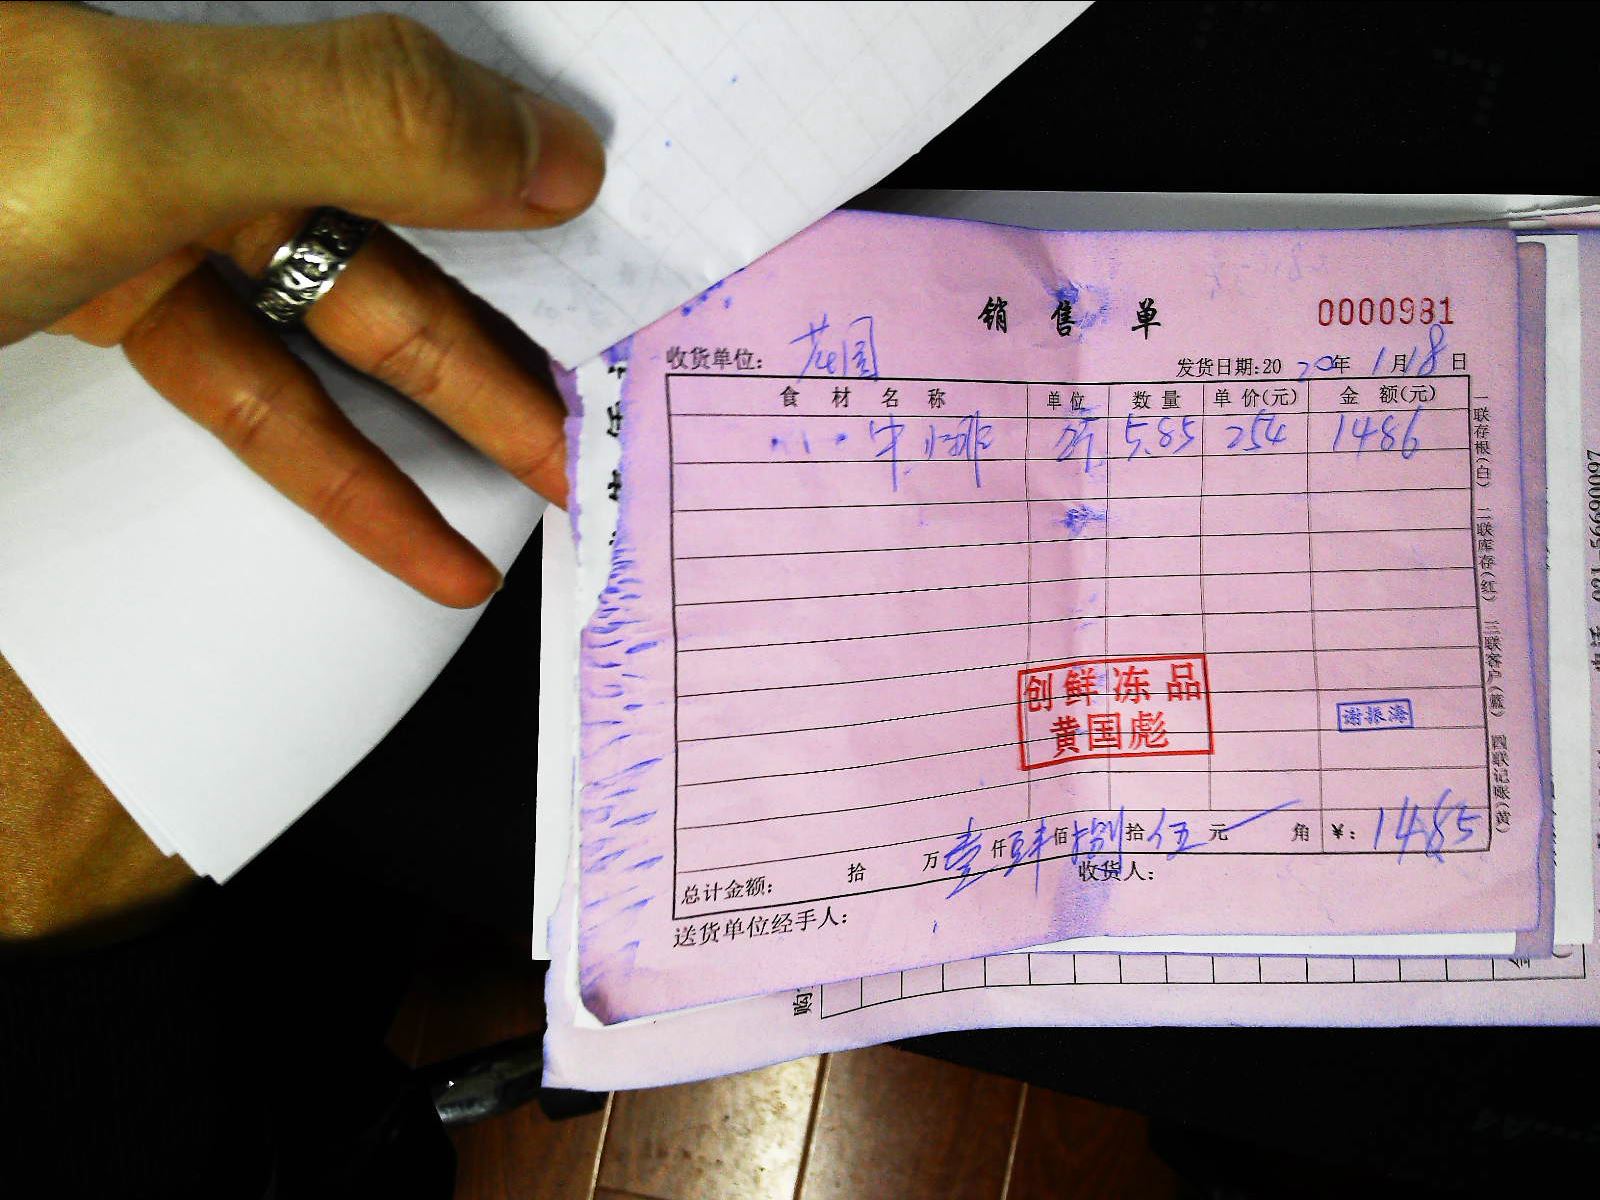 销售单
0000981
收货单位: 花园
发货日期:2020年1月18日
食材名称 单位 数量 单价(元) 金额(元)
牛小排 5.85 254 1486
创鲜冻品
黄国彪
谢振海
总计金额: 拾 万壹仟肆佰捌拾伍元 角 ¥: 1485
送货单位经手人: 收货人:
一联存根(白) 二联库存(红) 三联客户(蓝) 四联记账(黄)
购
021-56690097